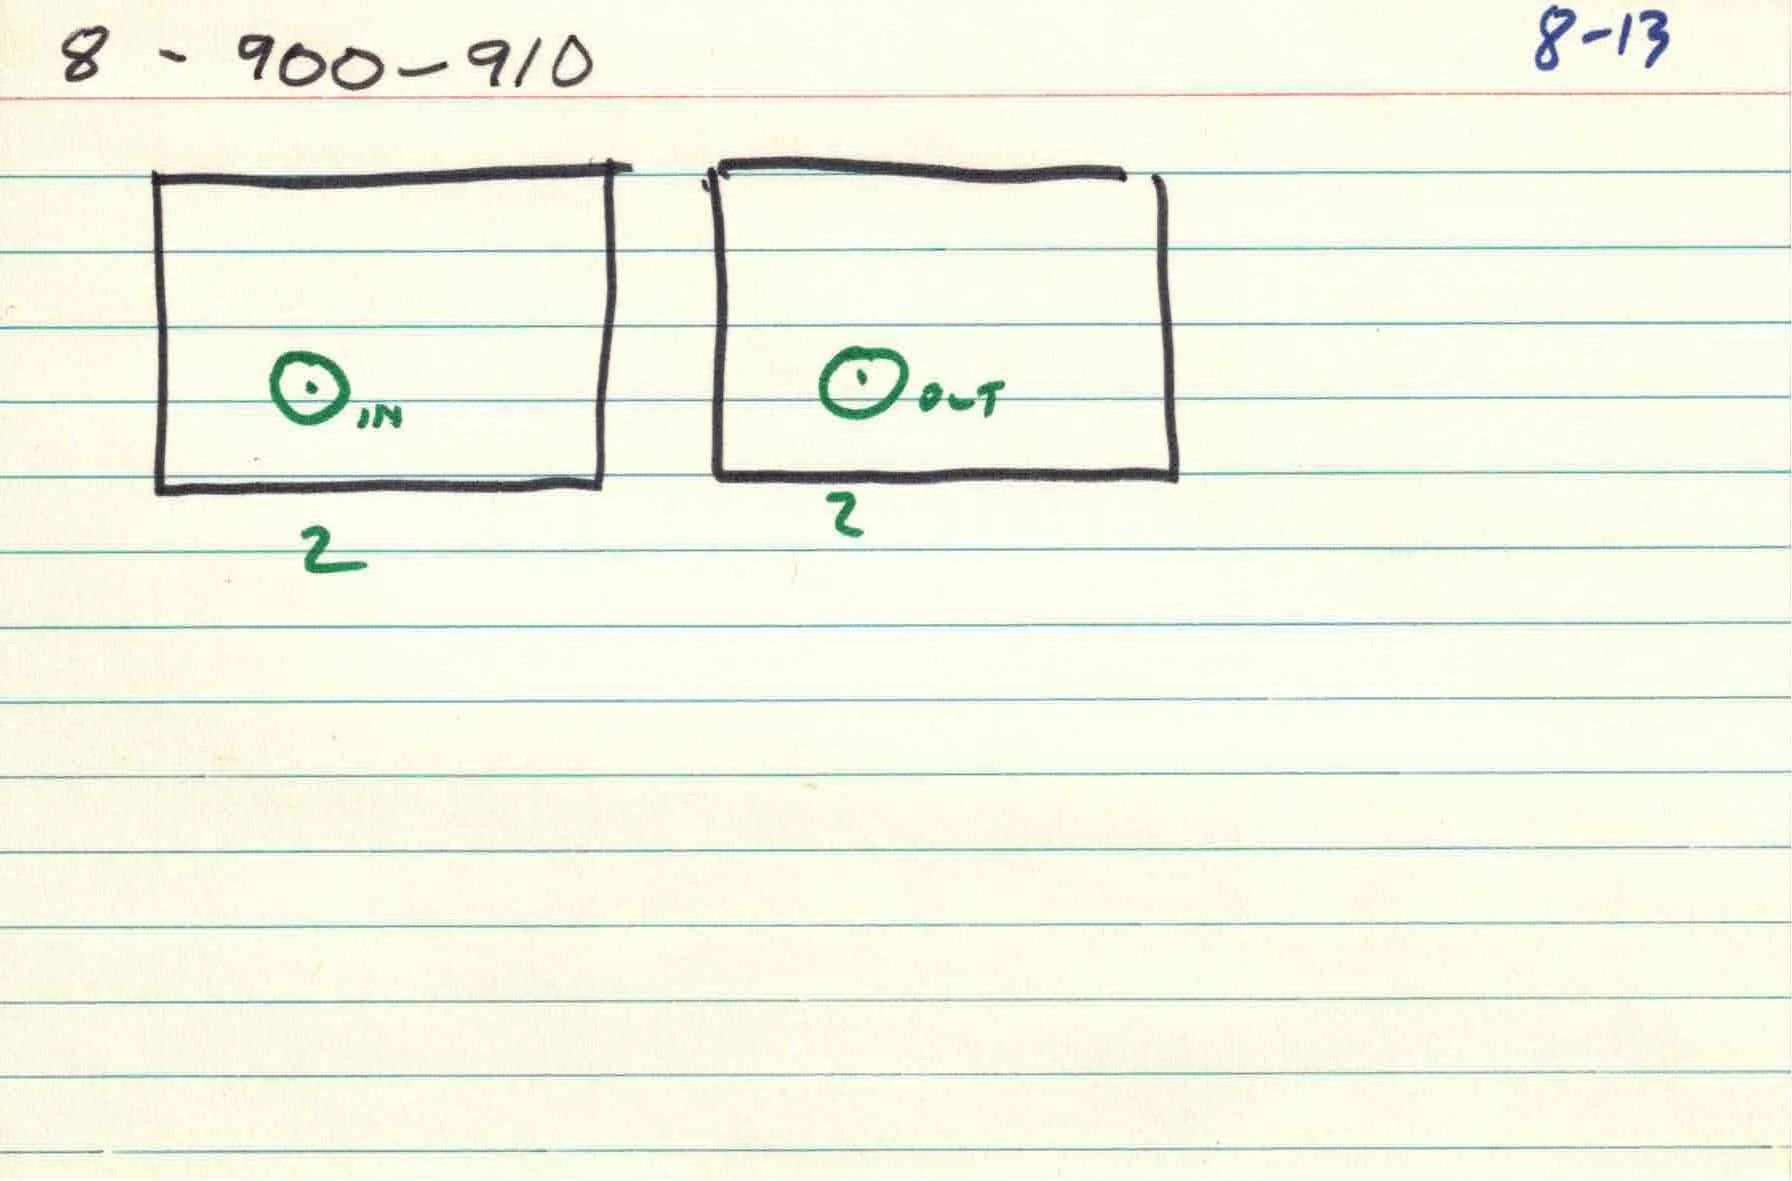 8 - 900-910
8-13
IN
OUT
2
2